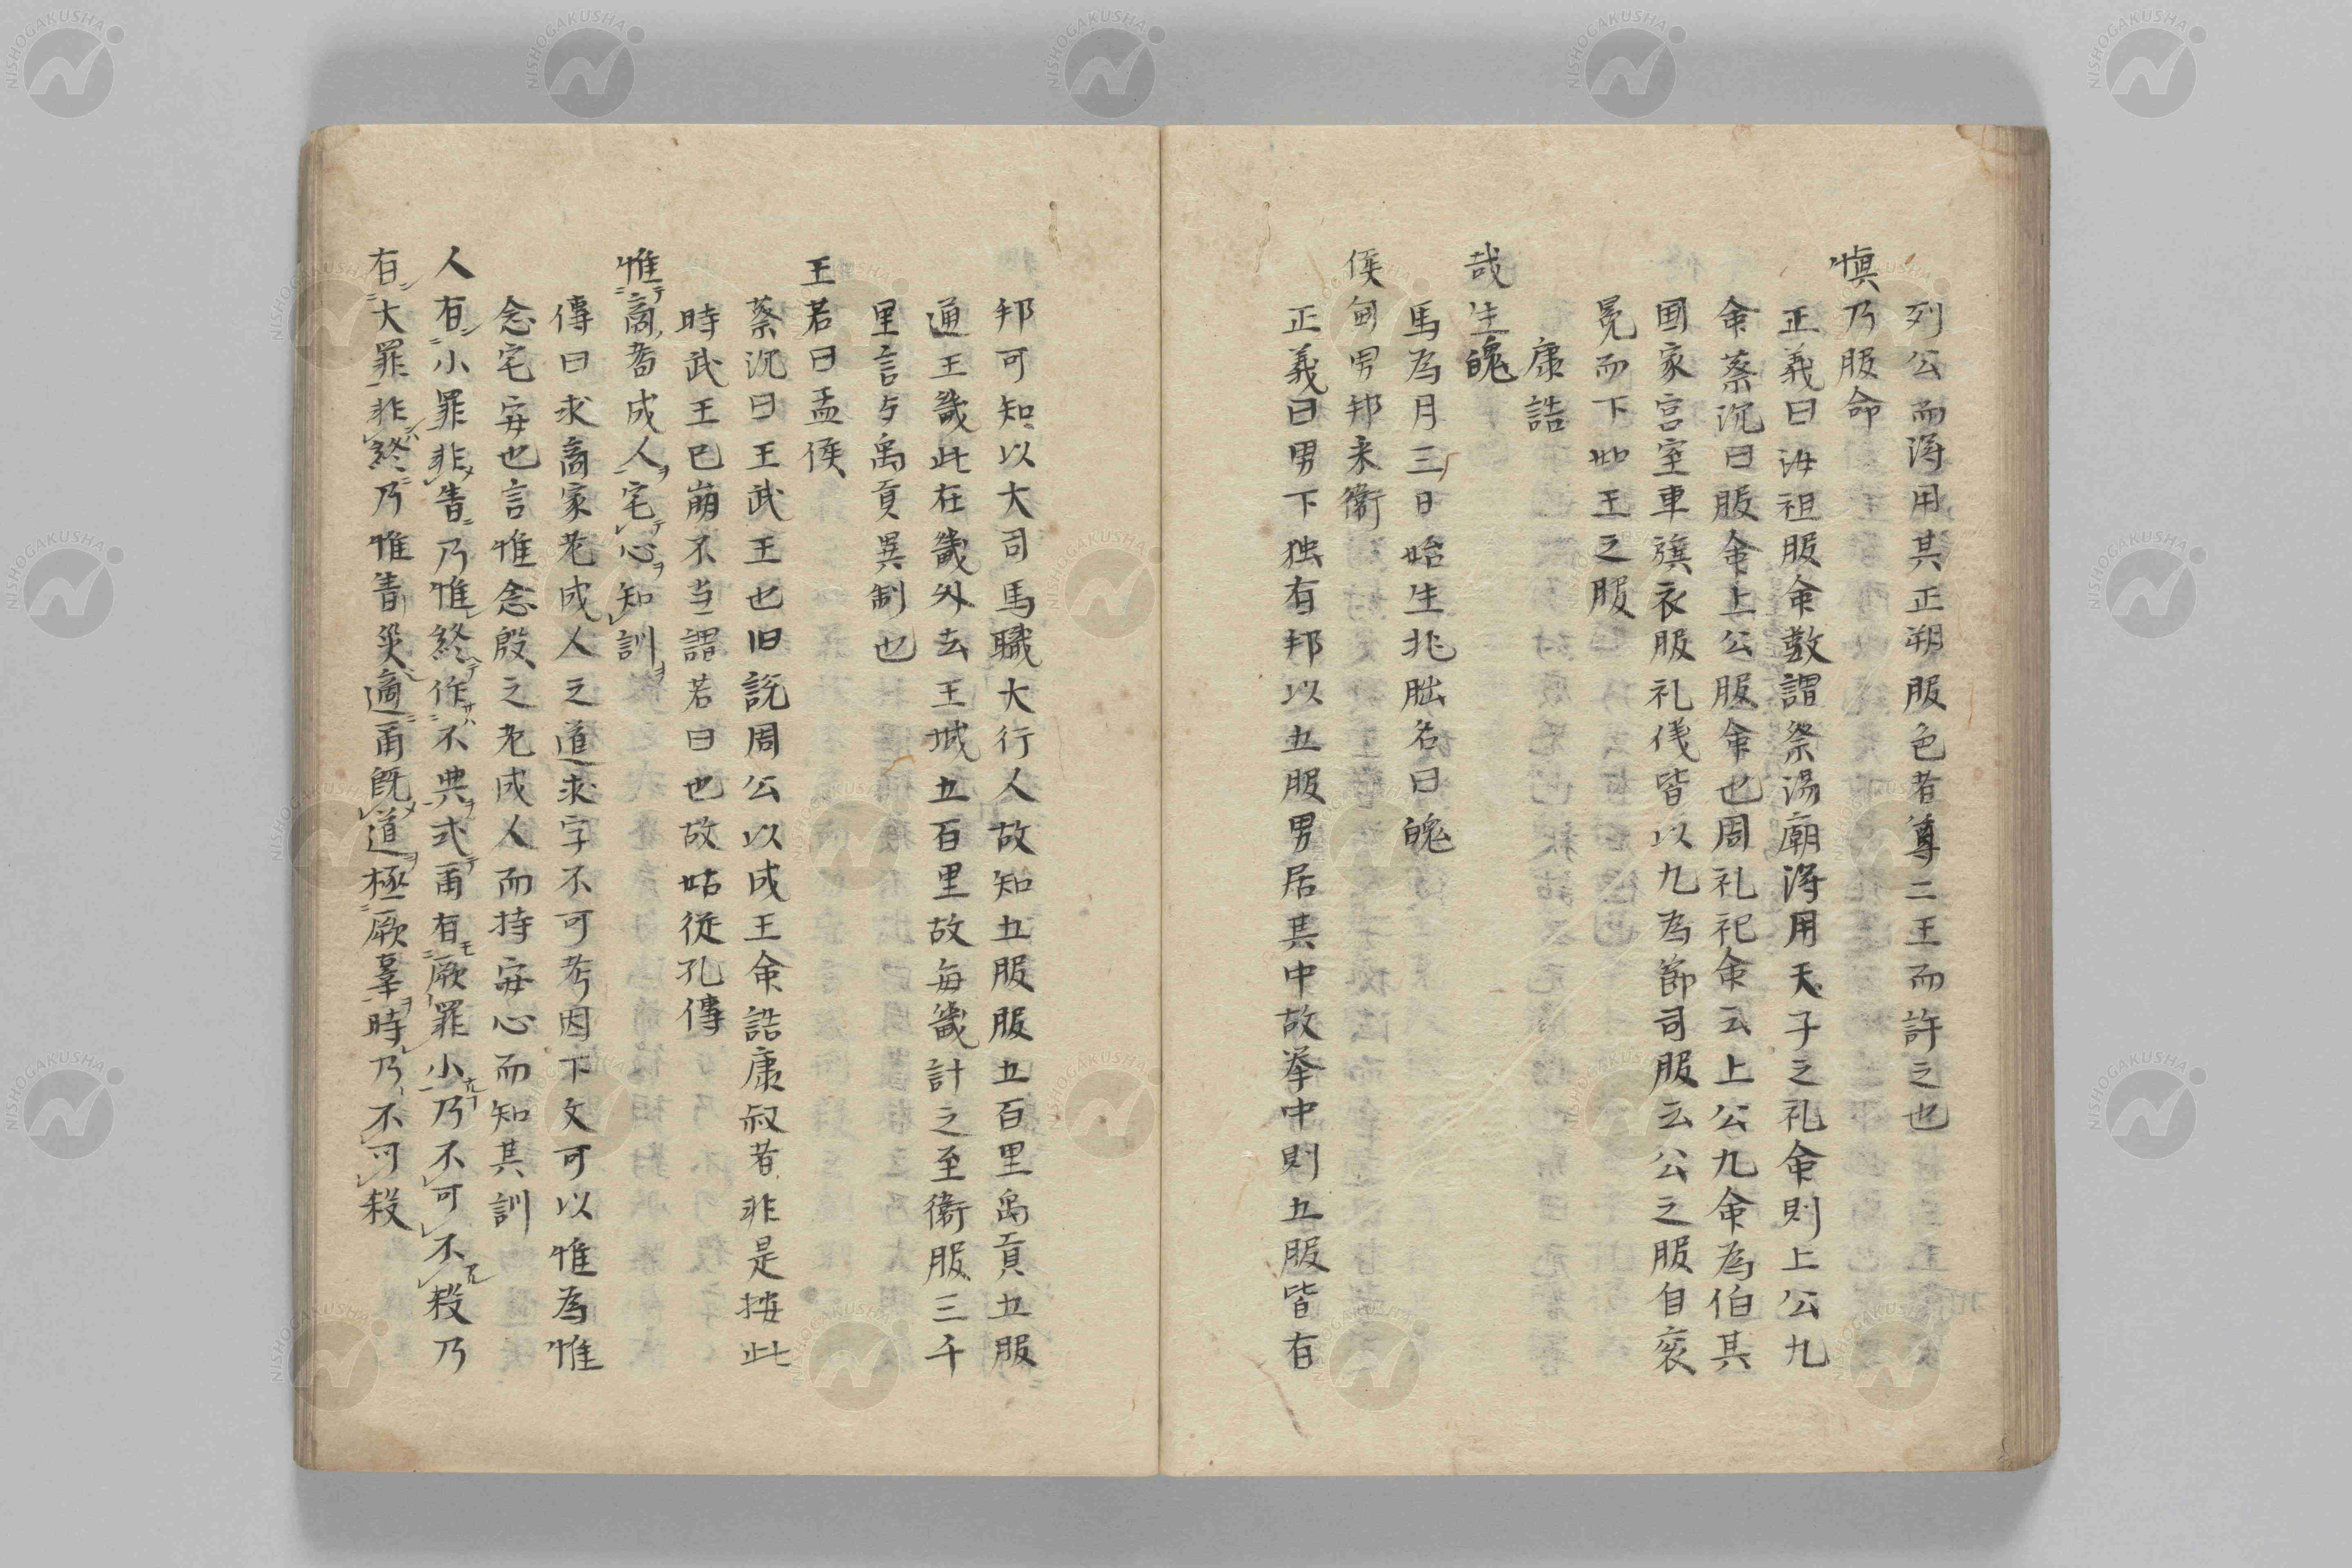 列公而得用其正朔服色者尊二王而許之也
愼乃服命
正義曰汝祖服命数謂祭湯廟得用天子之礼命則上公九
命蔡沉曰服命上公服命也周礼祀命云上公九命為伯其
国家宮室車旗衣服礼儀皆以九為節司服云公之服自袞
冕而下如王之服
康誥
哉生魄
馬為月三日始生兆朏名曰魄
侯甸男邦来衛
正義曰男下独有邦以五服男居其中故挙中則五服皆有
邦可知以大司馬職大行人故知五服服五百里禹貢五服
通王畿此在畿外去王城五百里故毎畿計之至衛服三千
里言与禹貢異制也
王若曰孟侯
蔡沉曰王武王也旧説周公以成王命誥康叔者非是按此
時武王已崩不当謂若曰也故姑従孔傳
惟商耇成人宅心知訓
傳曰求商家老成人之道求字不可考因下文可以惟為惟
念宅安也言惟念殷之老成人而持安心而知其訓
人有小罪非眚乃惟終作不典式甬有厥罪小乃不可不殺乃
有大罪非終乃惟眚災適甬既道極厥辜時乃不可殺